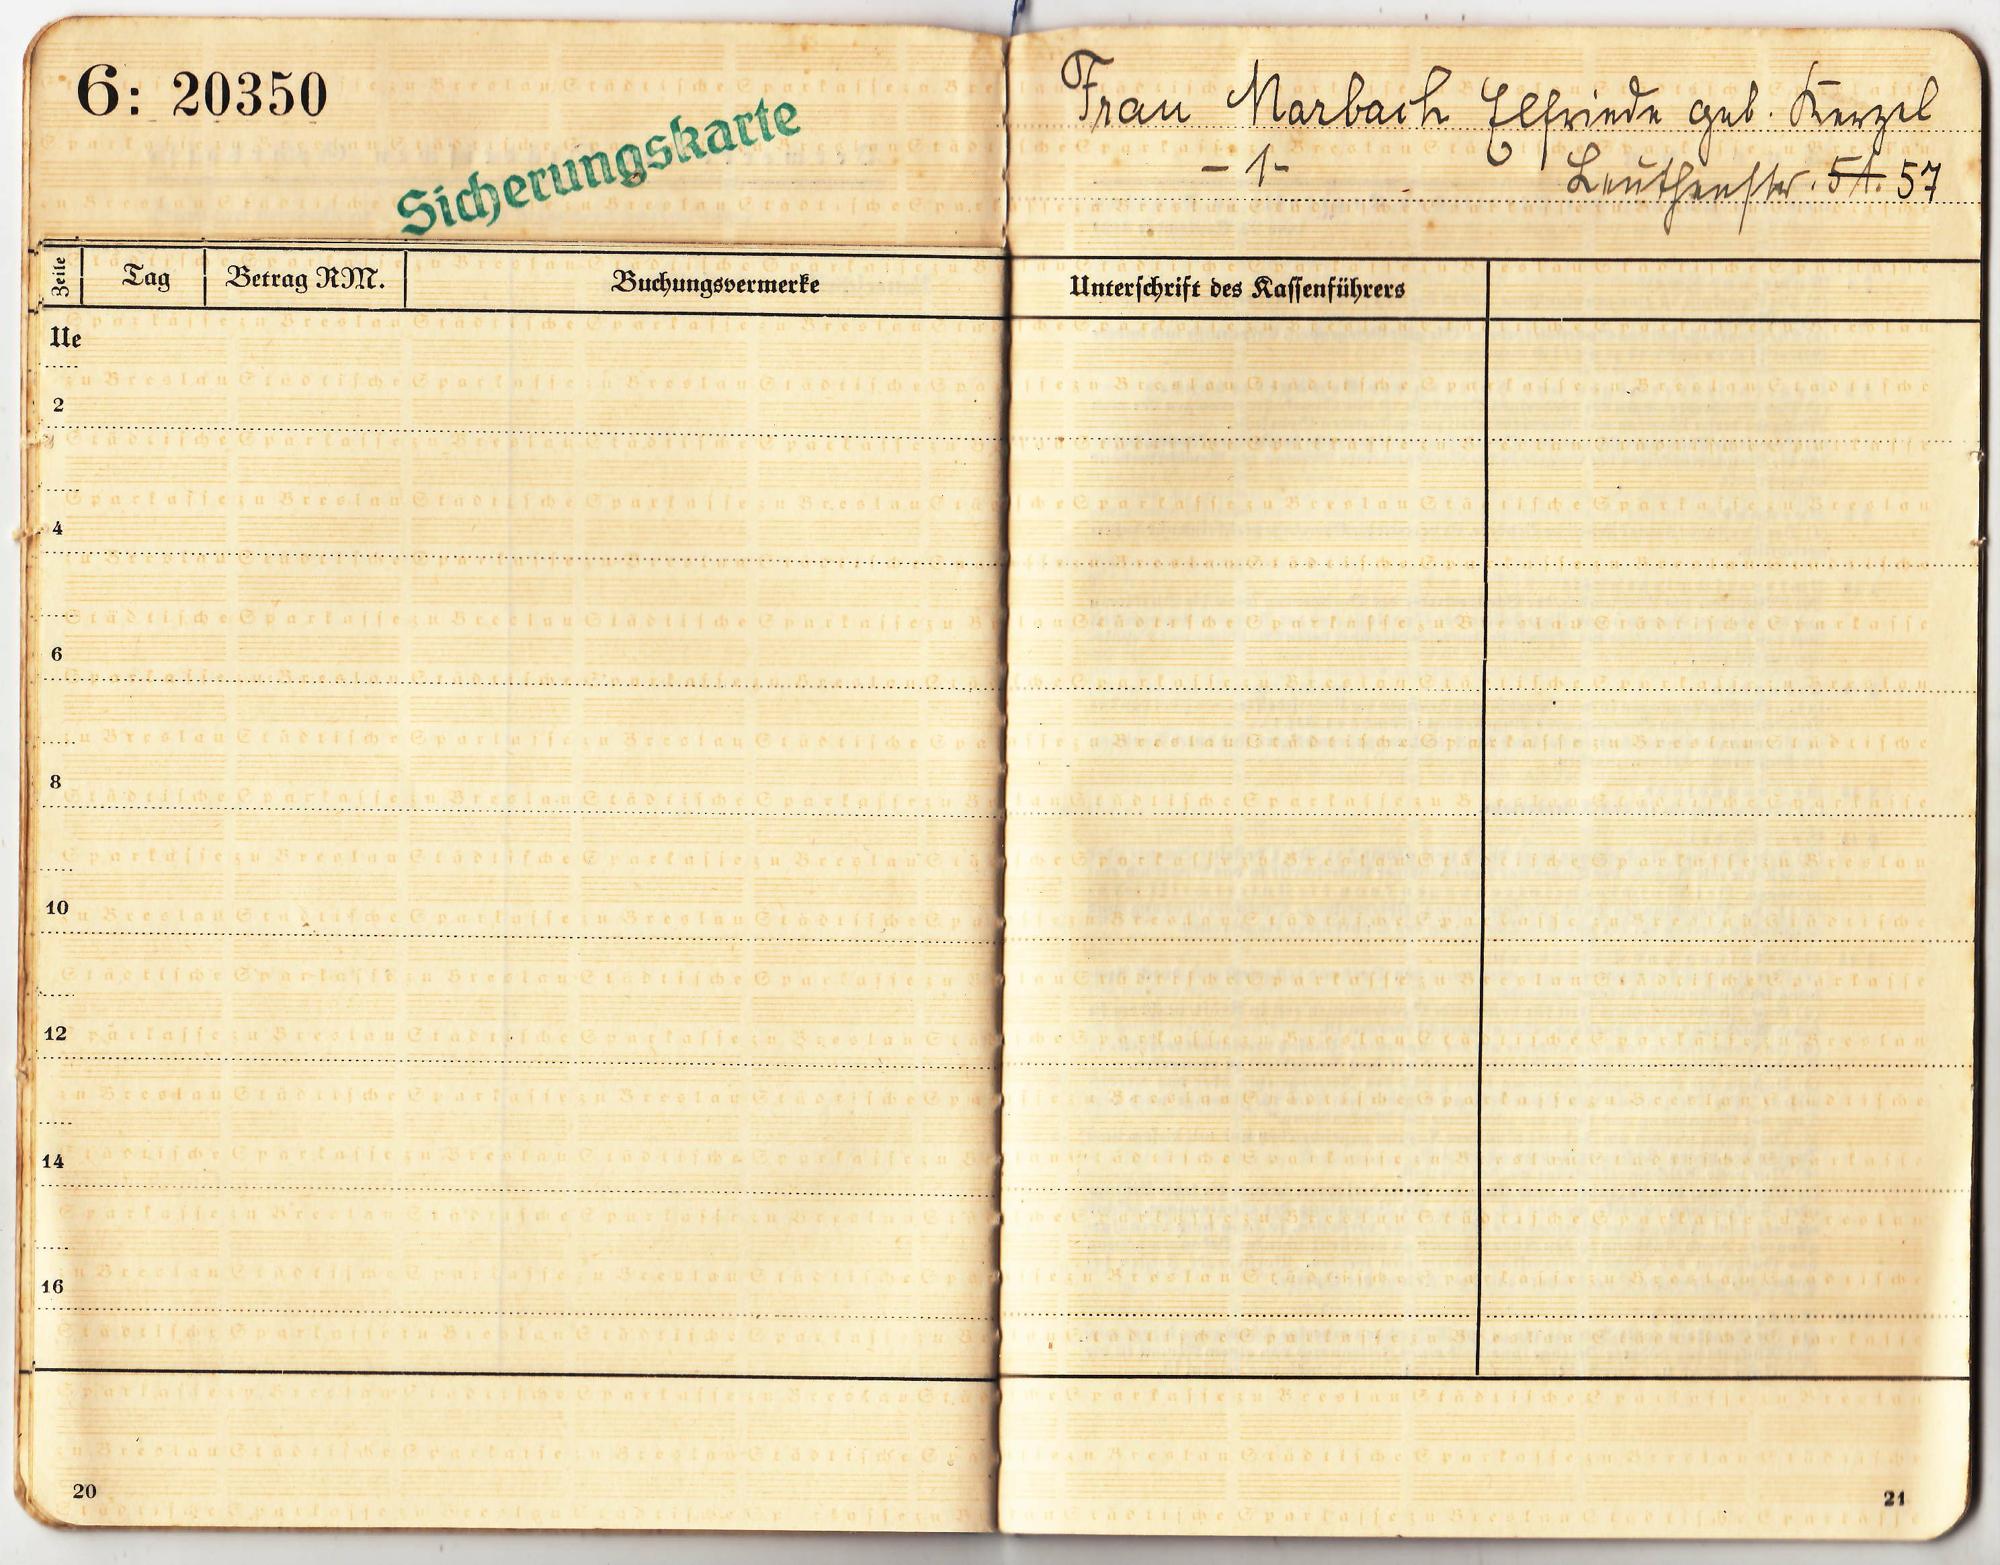 6: 20350
Sicherungskarte
Frau Marbach Elfriede geb. Kerzel
- 1 -
Leuthenstr. 57
Zeile Tag Betrag RM. Buchungsvermerke Unterschrift des Kassenführers
2
4
6
8
10
12
14
16
20
21
Städtische Sparkasse zu Breslau